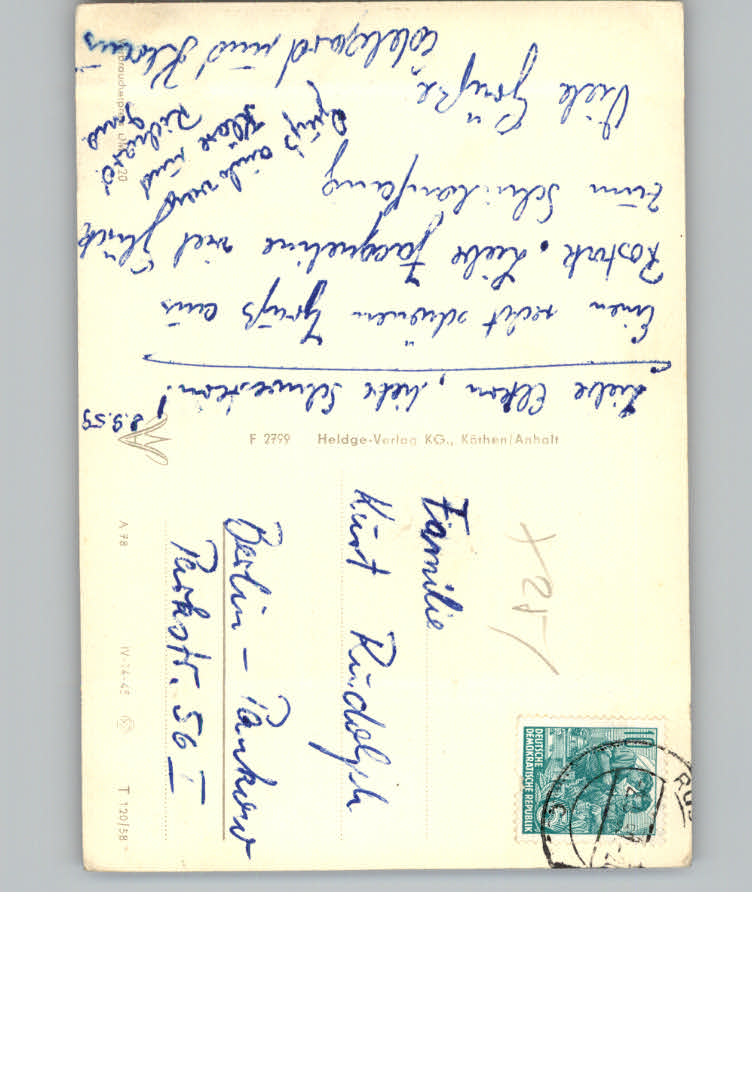 3.9.59
Liebe Eltern, liebe Schwestern!
Einen recht schönen Gruß aus
Rostock. Liebe Jacqueline viel Glück
zum Schulanfang
Viele Grüße
und Klaus
Gruß auch
und
Richard
F 2799 Heldge-Verlag KG., Köthen/Anhalt
Familie
Kurt Rudolph
Berlin-Pankow
Parkstr. 56 I
DEUTSCHE
DEMOKRATISCHE REPUBLIK
A 78
IV-14-45
T 120/58